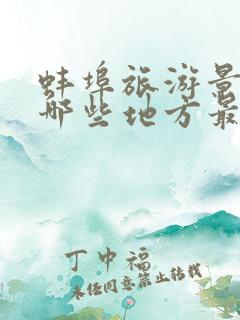 蚌埠旅游景
那些地方最
丁中福
未经同意禁止转载